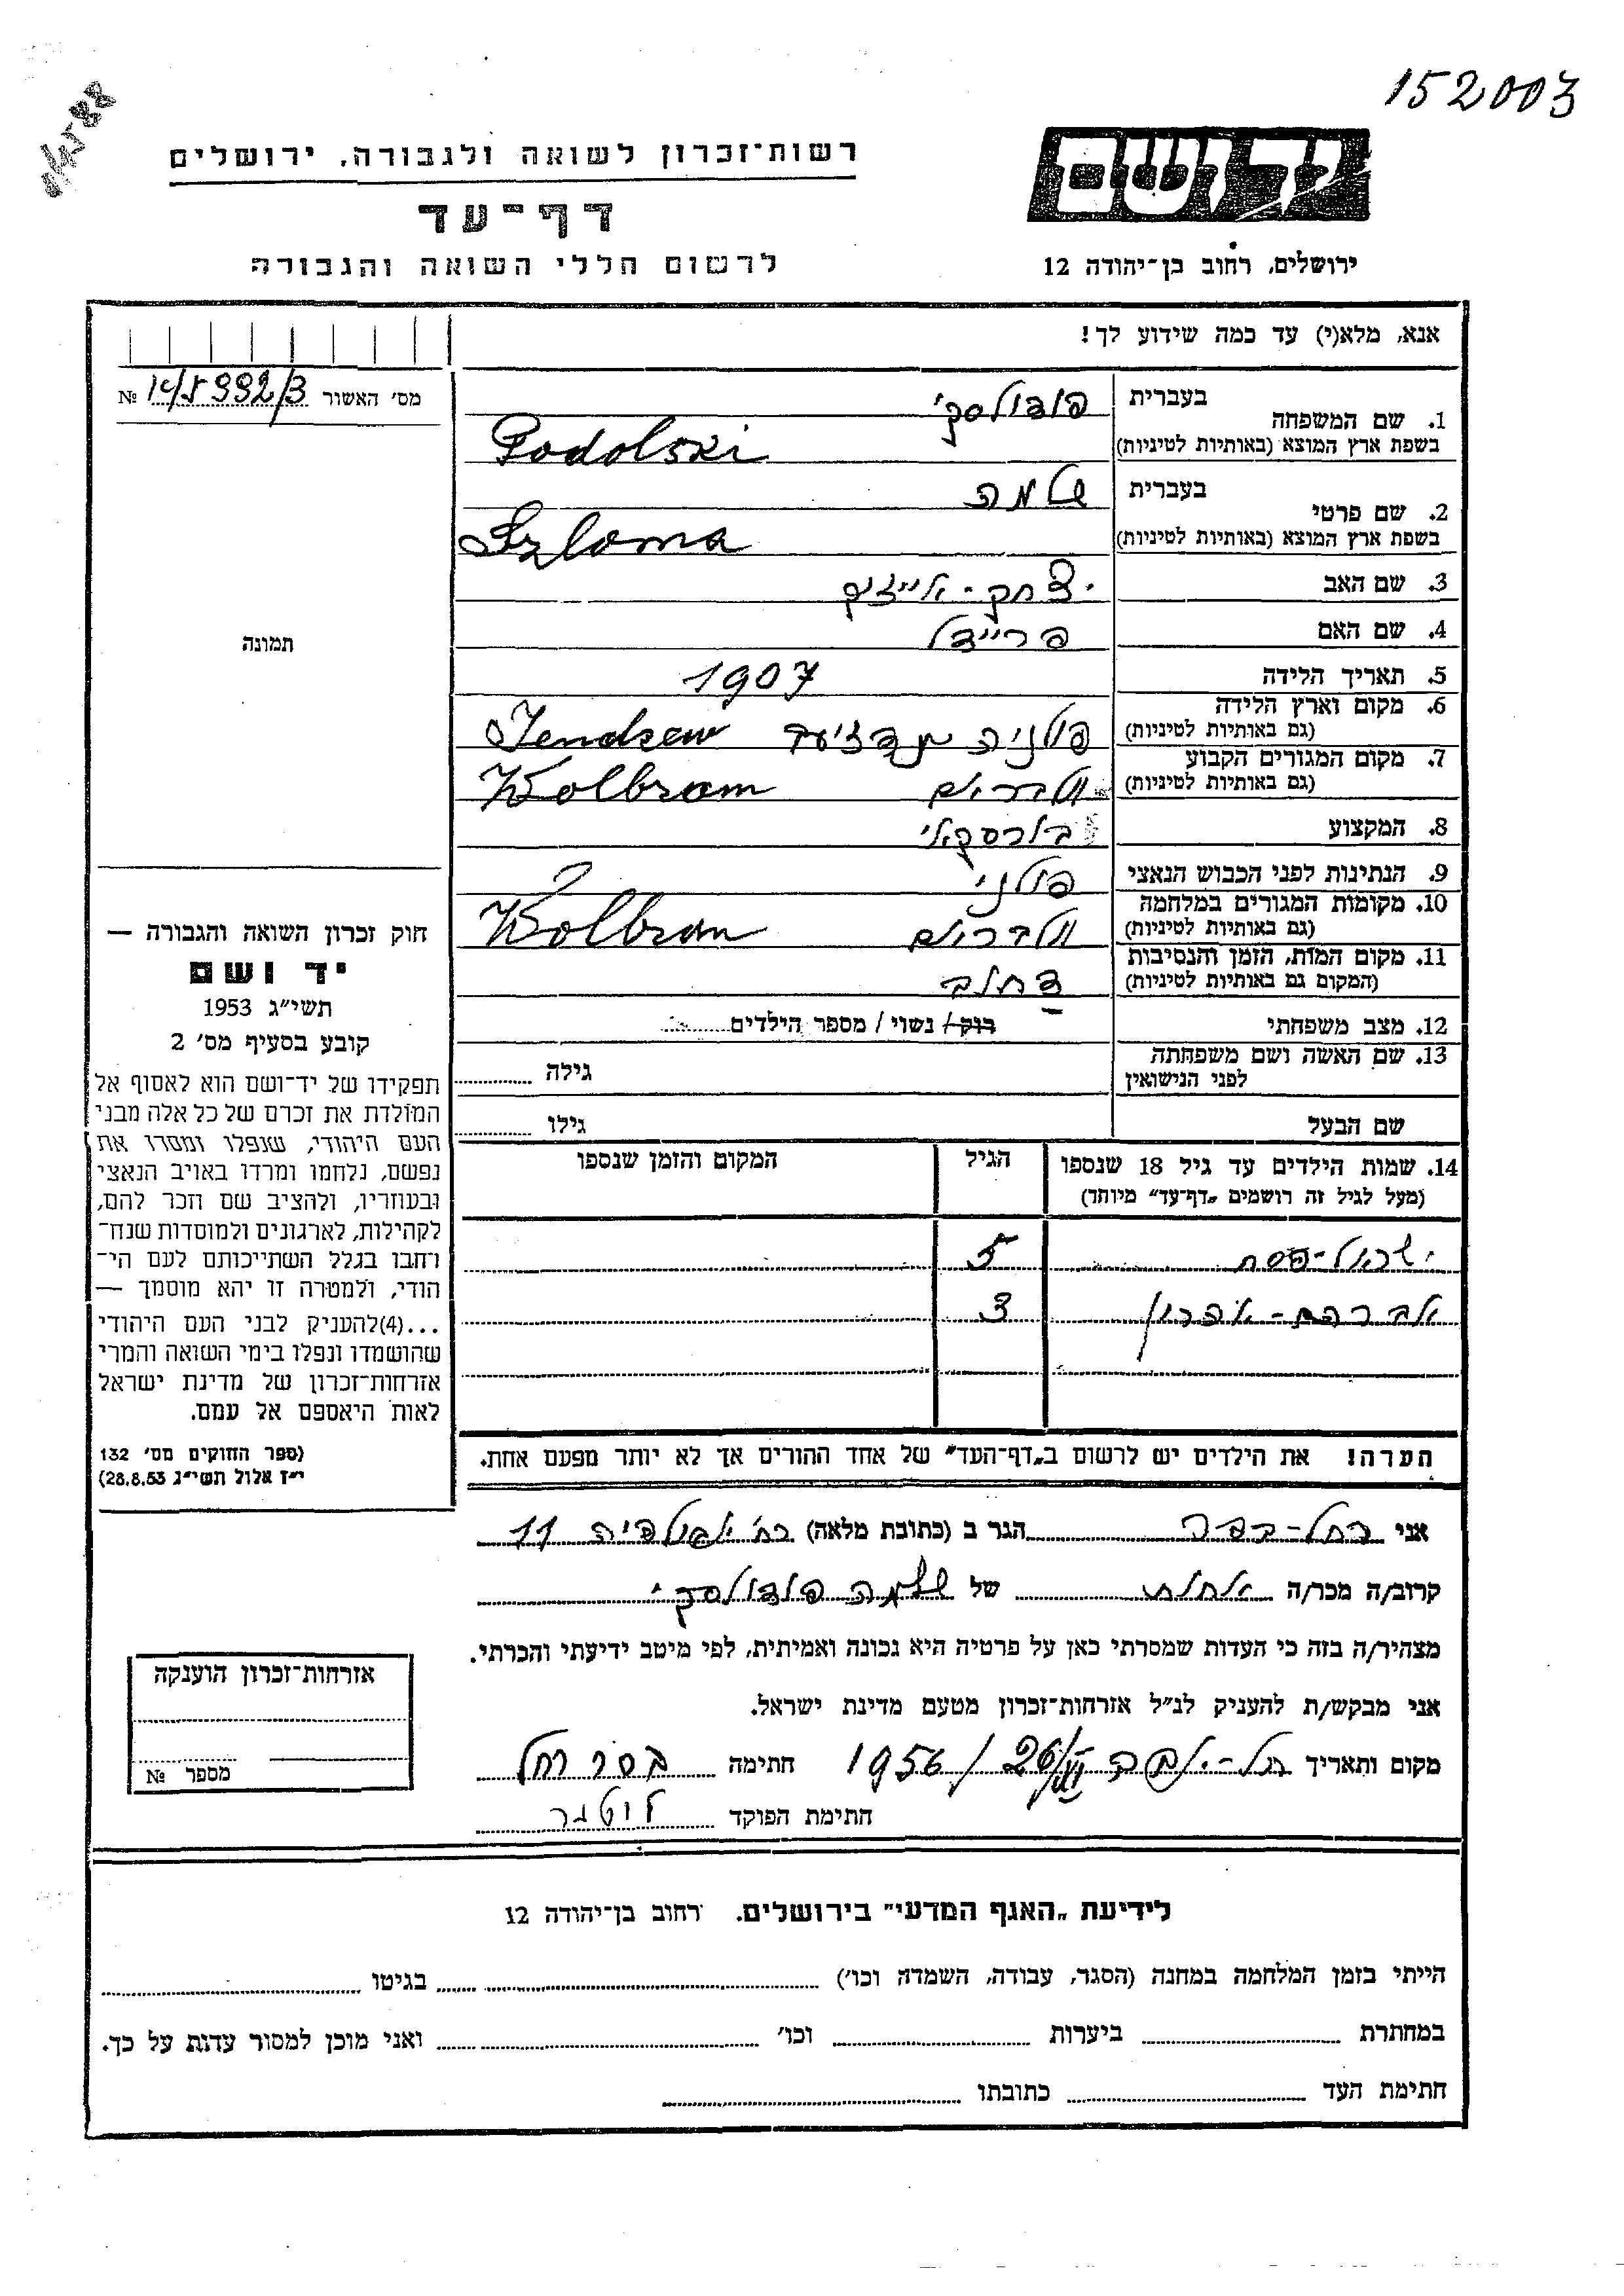 152003
יד ושם
ירושלים, רחוב בן־יהודה 12
רשות־זכרון לשואה ולגבורה, ירושלים
דף־עד
לרשום חללי השואה והגבורה
אנא, מלא(י) עד כמה שידוע לך!
מס׳ האשור №
בעברית פודולסקי
1. שם המשפחה
בשפת ארץ המוצא (באותיות לטיניות) Podolski
בעברית שלמה
2. שם פרטי
בשפת ארץ המוצא (באותיות לטיניות) Szloma
3. שם האב יצחק-אייזיק
4. שם האם פריידל
5. תאריך הלידה 1907
6. מקום וארץ הלידה
(גם באותיות לטיניות) פולניה Jendzew
7. מקום המגורים הקבוע
(גם באותיות לטיניות) וולברום Wolbrom
8. המקצוע בורסקאי
9. הנתינות לפני הכבוש הנאצי פולני
10. מקומות המגורים במלחמה
(גם באותיות לטיניות) וולברום Wolbrom
11. מקום המות, הזמן והנסיבות
(המקום גם באותיות לטיניות)
12. מצב משפחתי רוק/ נשוי/ מספר הילדים
13. שם האשה ושם משפחתה
לפני הנישואין גילה
שם הבעל גילו
14. שמות הילדים עד גיל 18 שנספו הגיל המקום והזמן שנספו
(מעל לגיל זה רושמים „דף־עד” מיוחד)
ישראל-פסח 5
אברהם-אהרון 3
הערה! את הילדים יש לרשום ב„דף־העד” של אחד ההורים אך לא יותר מפעם אחת.
תמונה
חוק זכרון השואה והגבורה —
יד ושם
תשי״ג 1953
קובע בסעיף מס׳ 2
תפקידו של יד־ושם הוא לאסוף אל
המולדת את זכרם של כל אלה מבני
העם היהודי, שנפלו ומסרו את
נפשם, נלחמו ומרדו באויב הנאצי
ובעוזריו, ולהציב שם וזכר להם,
לקהילות, לארגונים ולמוסדות שנח־
רחבו בגלל השתייכותם לעם הי־
הודי, ולמטרה זו יהא מוסמך —
...(4)להעניק לבני העם היהודי
שהושמדו ונפלו בימי השואה והמרי
אזרחות־זכרון של מדינת ישראל
לאות היאספם אל עמם.
(ספר החוקים מס׳ 132
י״ז אלול תשי״ג 28.8.53)
אני רחל הגר ב (כתובת מלאה) רח׳ 11
קרוב/ה מכר/ה אחות של שלמה פודולסקי
מצהיר/ה בזה כי העדות שמסרתי כאן על פרטיה היא נכונה ואמיתית, לפי מיטב ידיעתי והכרתי.
אני מבקש/ת להעניק לנ״ל אזרחות־זכרון מטעם מדינת ישראל.
מקום ותאריך 1956 חתימה רחל
חתימת הפוקד
אזרחות־זכרון הוענקה
מספר №
לידיעת „האגף המדעי” בירושלים. רחוב בן־יהודה 12
הייתי בזמן המלחמה במחנה (הסגר, עבודה, השמדה וכו׳) בגיטו
במחתרת ביערות וכו׳ ואני מוכן למסור עדות על כך.
חתימת העד כתובתו